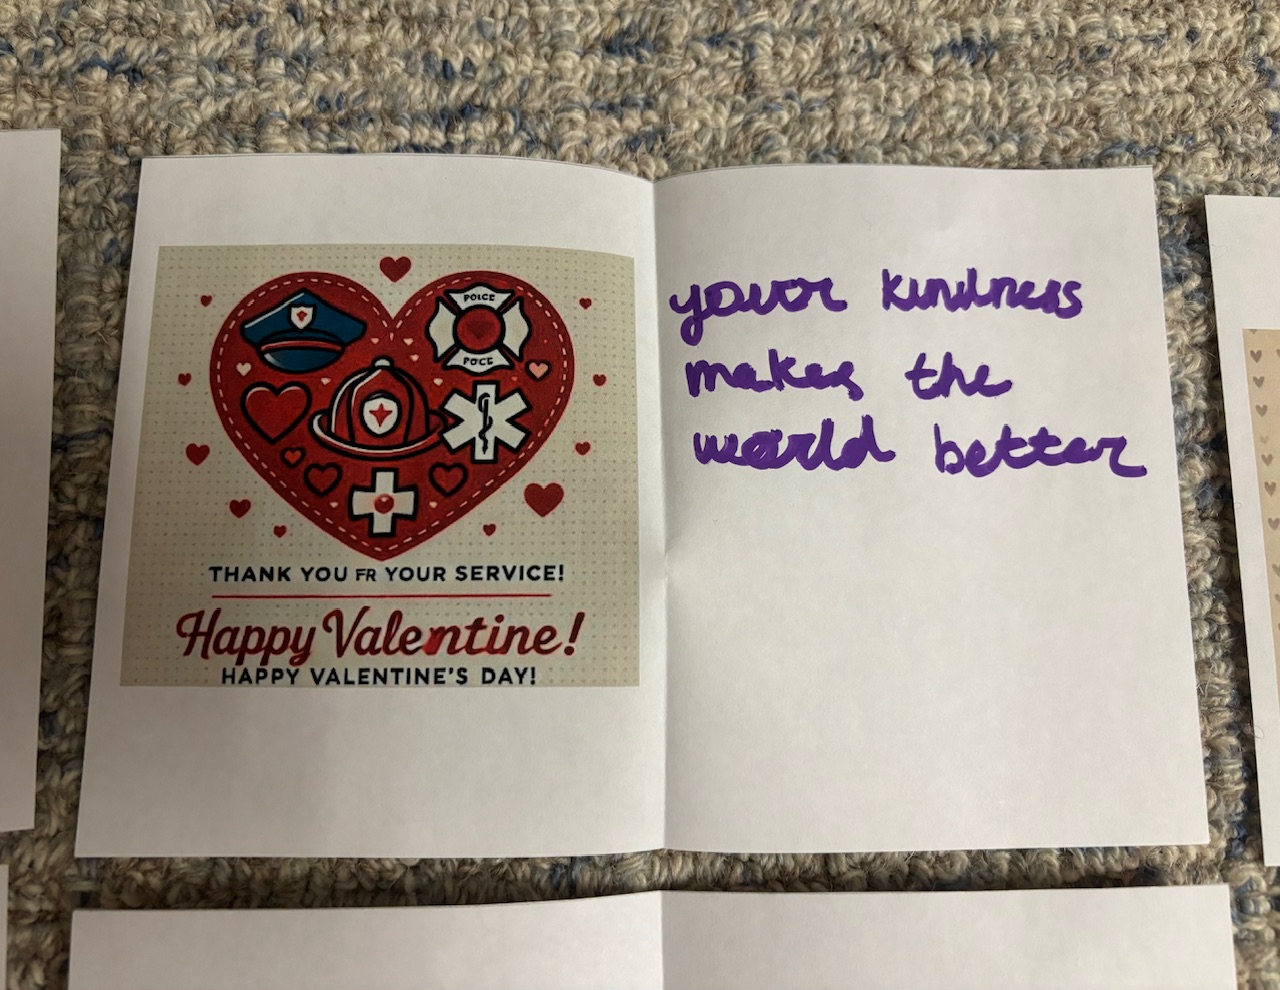 POLCE
POCE
THANK YOU FR YOUR SERVICE!
Happy Valentine!
HAPPY VALENTINE'S DAY!
your kindness
makes the
world better